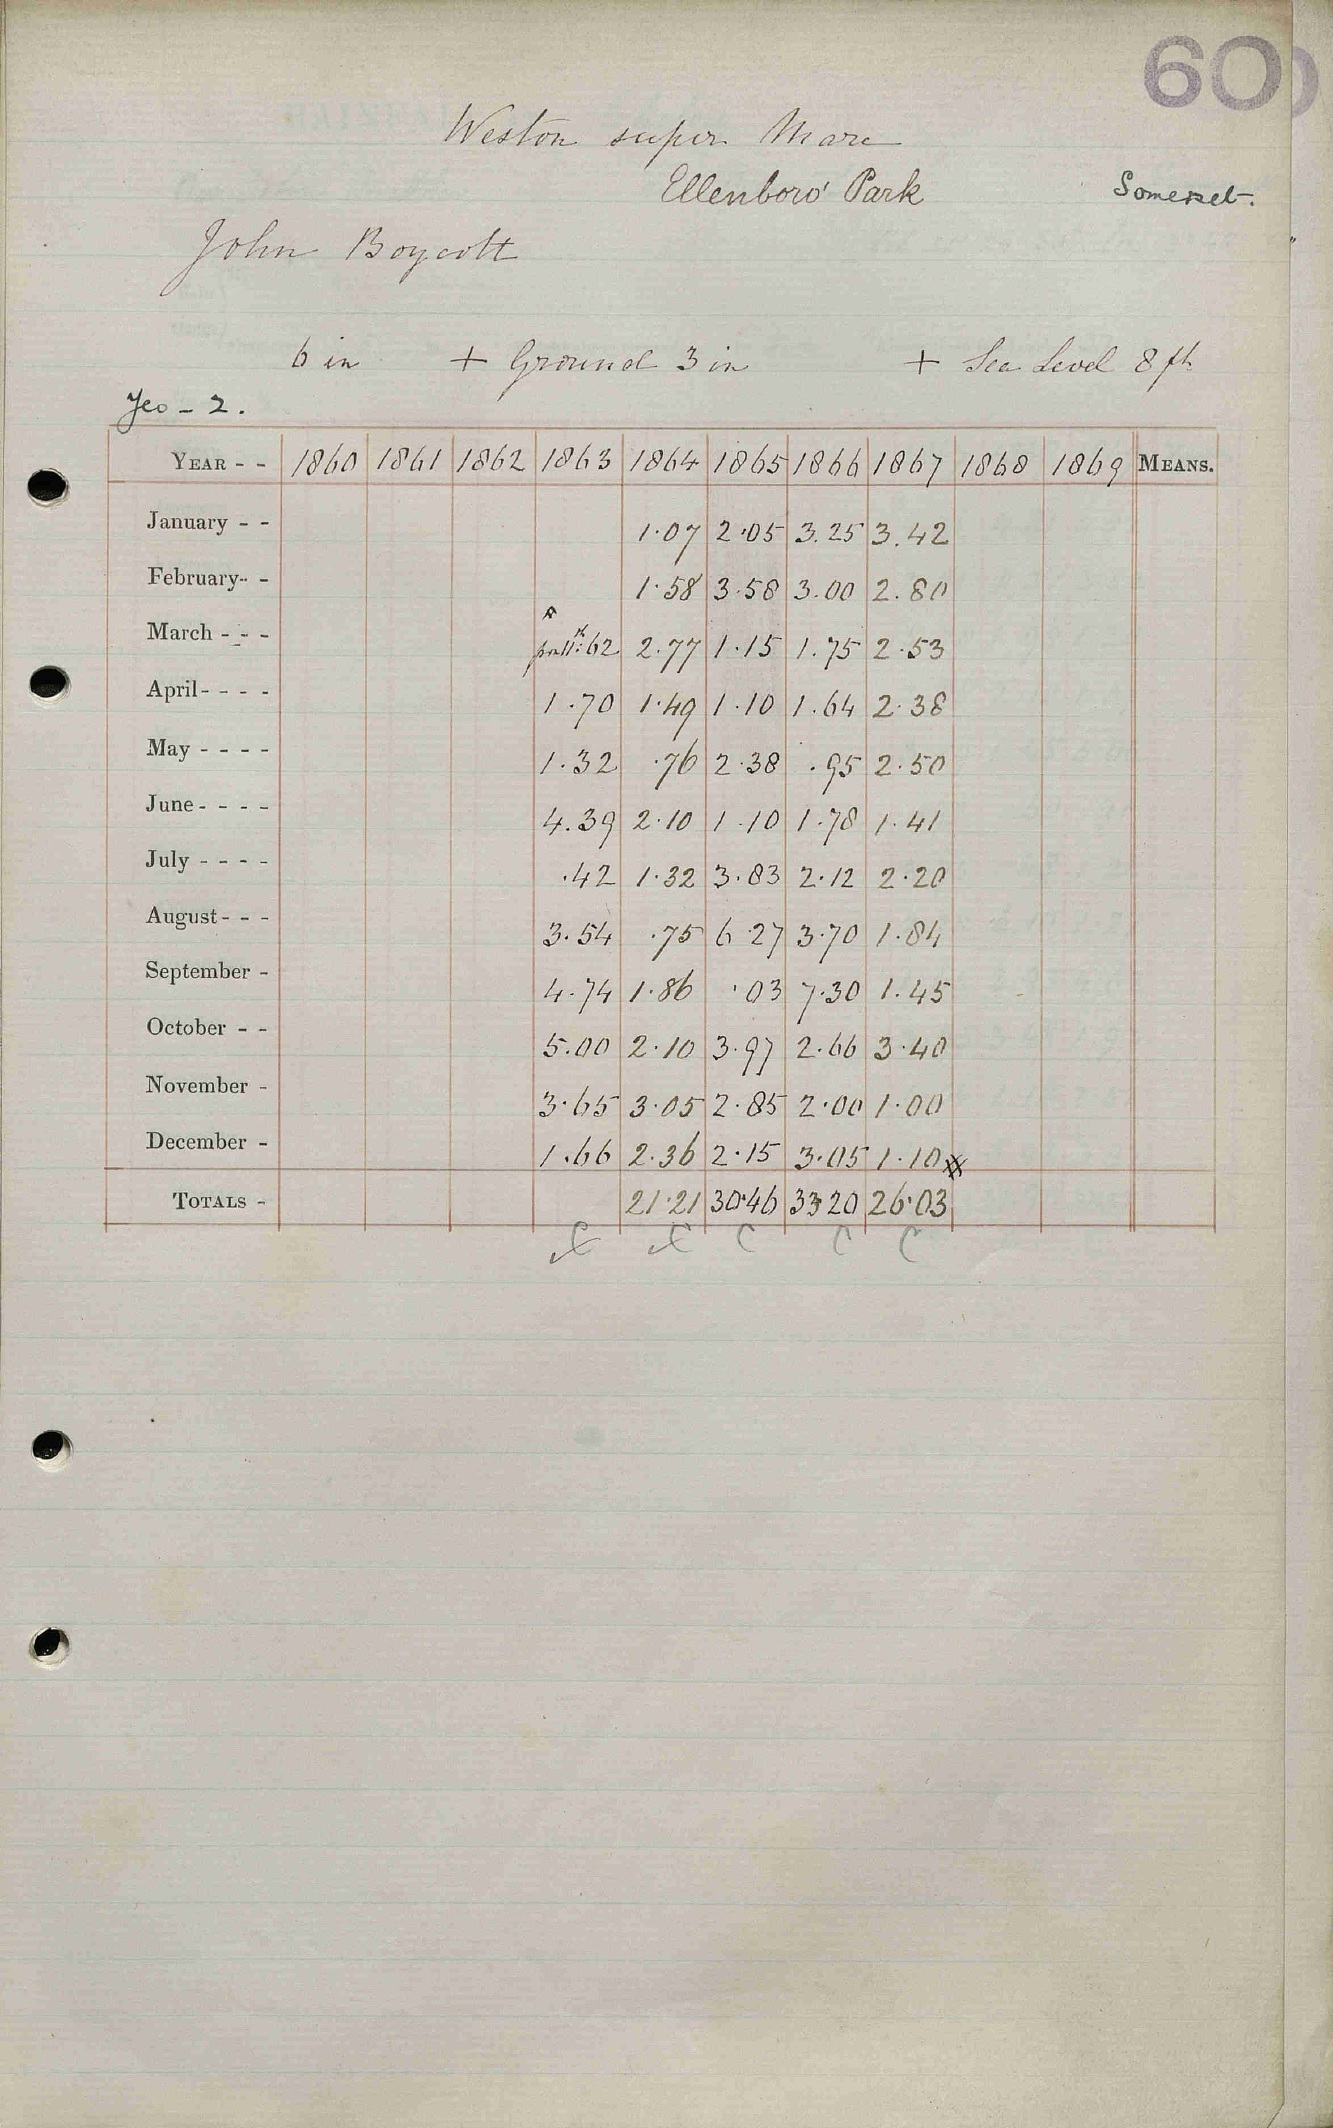 60
Weston super Mare
Ellenboro' Park
Somerset.
John Boycott
6 in + Ground 3 in + Sea Level 8 ft
Yeo - 2.
YEAR - - 1860 1861 1862 1863 1864 1865 1866 1867 1868 1869 MEANS.
January - - 1.07 2.05 3.25 3.42
February - - 1.58 3.58 3.00 2.80
March - - - .62 2.77 1.15 1.75 2.53
April - - - - 1.70 1.49 1.10 1.64 2.38
May - - - - 1.32 .76 2.38 .95 2.50
June - - - - 4.39 2.10 1.10 1.78 1.41
July - - - - .42 1.32 3.83 2.12 2.20
August - - - 3.54 .75 6.27 3.70 1.84
September - 4.74 1.86 .03 7.30 1.45
October - - 5.00 2.10 3.97 2.66 3.40
November - 3.65 3.05 2.85 2.00 1.00
December - 1.66 2.36 2.15 3.05 1.10
TOTALS - 21.21 30.46 33.20 26.03